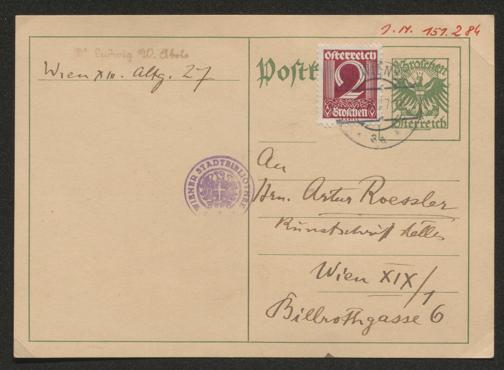 J.N. 151.284
Dr Ludwig W. Abels
Wien XIV. Altg. 27
Postk
Österreich
2
Groschen
Groschen
Österreich
WIEN
WIENER STADTBIBLIOTHEK
An
Hrn. Artur Roessler
Kunstschriftsteller
Wien XIX/1
Billrothgasse 6